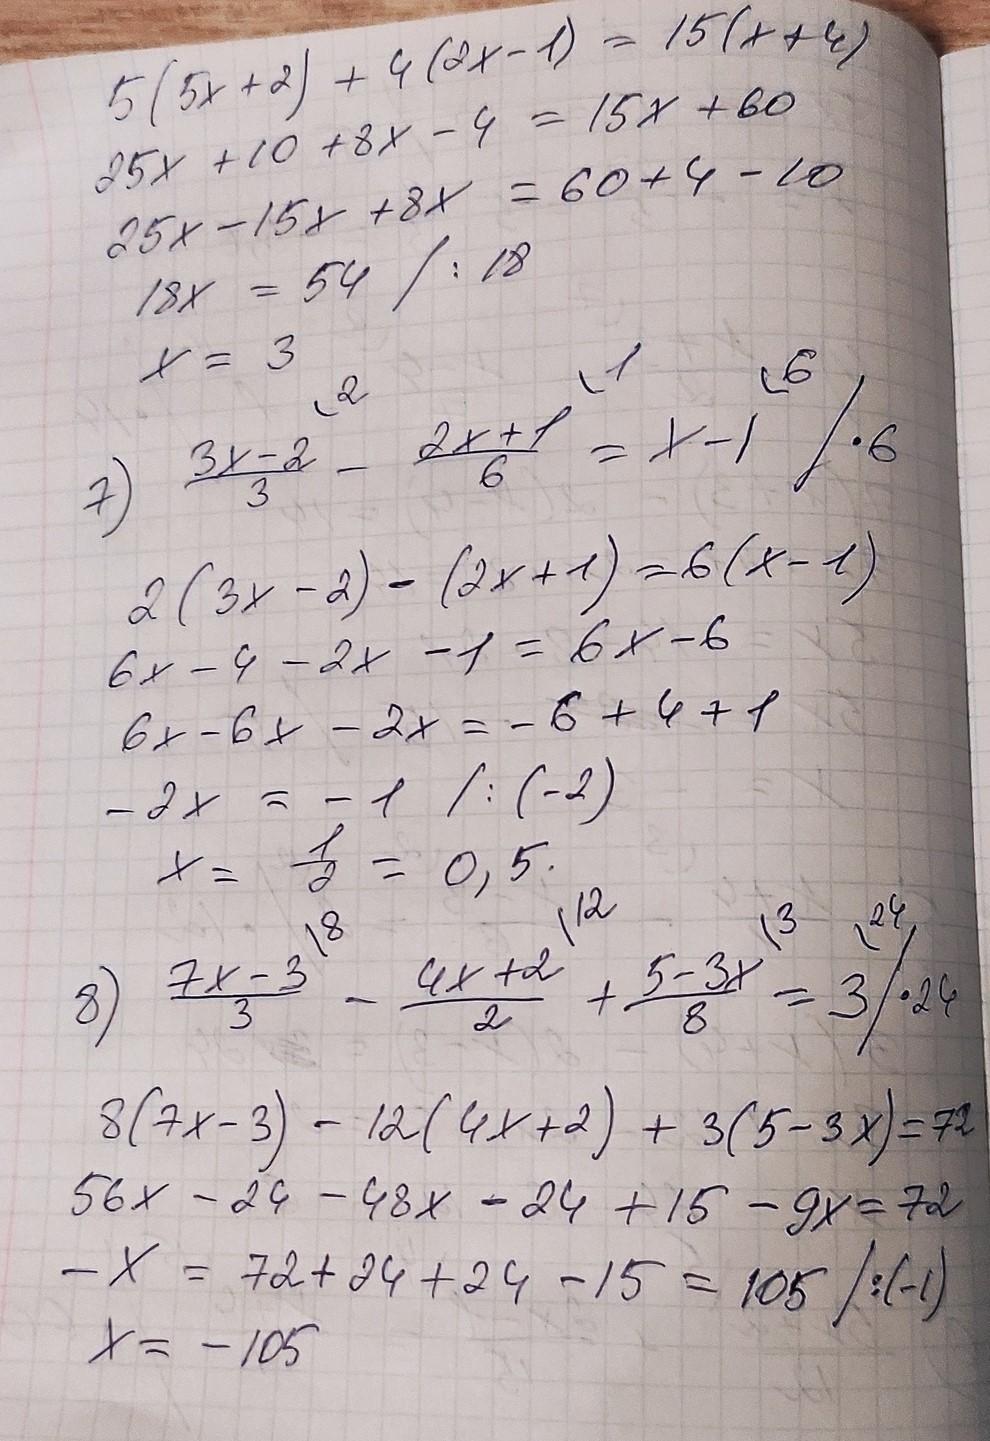 5(5x+2) + 4(2x-1) = 15(x+4)
25x + 10 + 8x - 4 = 15x + 60
25x - 15x + 8x = 60 + 4 - 10
18x = 54 /: 18
x = 3
7) (3x-2)/3 \2 - (2x+1)/6 \1 = x-1 \6 / •6
2(3x-2) - (2x+1) = 6(x-1)
6x - 4 - 2x - 1 = 6x - 6
6x - 6x - 2x = -6 + 4 + 1
-2x = -1 /: (-2)
x = 1/2 = 0,5.
8) (7x-3)/3 \8 - (4x+2)/2 \12 + (5-3x)/8 \3 = 3 \24 / •24
8(7x-3) - 12(4x+2) + 3(5-3x) = 72
56x - 24 - 48x - 24 + 15 - 9x = 72
-x = 72 + 24 + 24 - 15 = 105 /:(-1)
x = -105